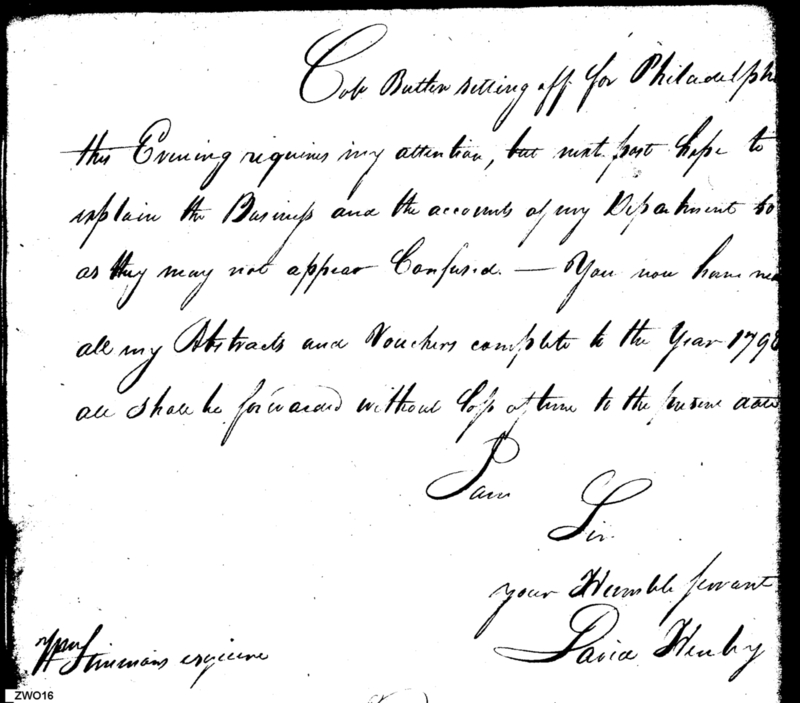 Colo Butler setting off for Philadelphi
this Evening requires my attention, but next post hope to
explain the Business and the accounts of my Department so
as they may not appear Confused. — You now have
all my Abstracts and Vouchers complete to the Year 179
all shall be forwarded without loss of time to the present date
I am
Sir
your Humble servant
David Henley
Wm Simmons esquire
_ZWO16